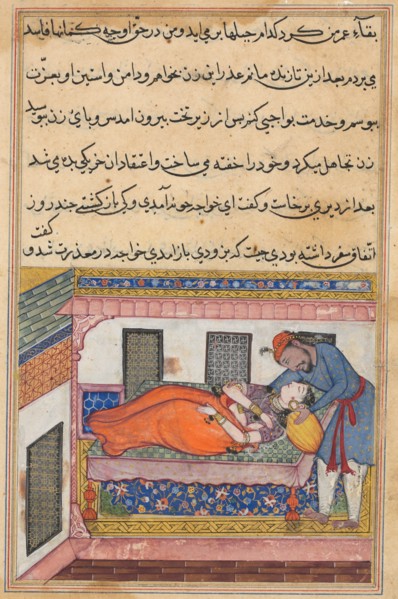 بقاء عمر من کرد کدام حیلها برمی آید و من در حق او چه کمانها فاسد
می بردم بعد ازین تا زنده مانم عذر این زن بخواهم و دامن و استین او بعزت
ببوسم و خدمت بواجبی کنم پس از زیر تخت بیرون امد سر و پای زن ببوسید
زن تجاهل میکرد و خود را خفته می ساخت و اعتقاد ان خر یکی بده می شد
بعد از دیری برخاست و کفت ای خواجه خوش آمدی و کی باز کشتی چند روز
اتفاق سفر داشته بودی چیست که بزودی باز امدی خواجه در معذرت شد و کفت